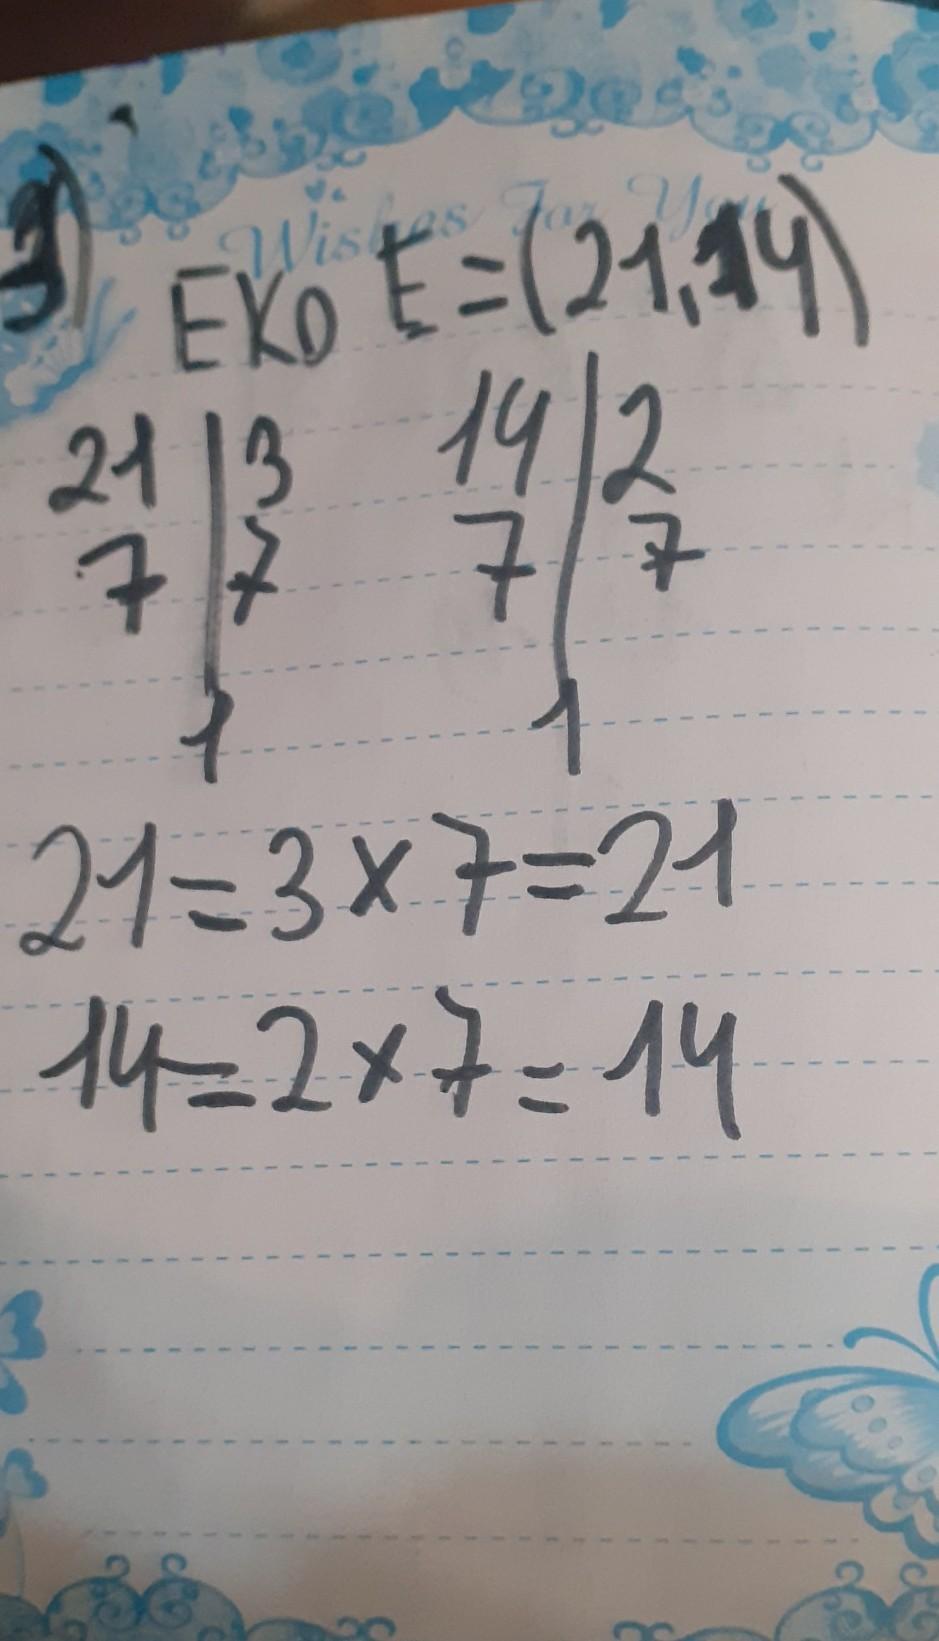 Wishes For You
3) EKO E=(21,14)
21 | 3 14 | 2
7 | 7 7 | 7
1 1
21=3×7=21
14=2×7=14